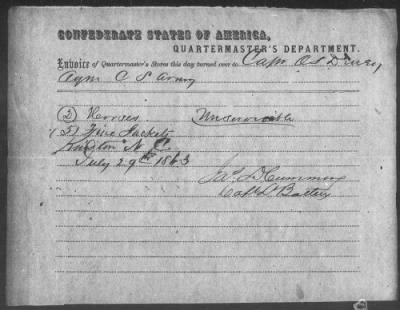 CONFEDERATE STATES OF AMERICA,
QUARTERMASTER'S DEPARTMENT.
Invoice of Quartermaster's Stores this day turned over to Capt
C S Army
(2) Horses Unservicable
(5) Jackets
Kingston N C
July 29th 1863
Jas D Cumming
Capt Battery